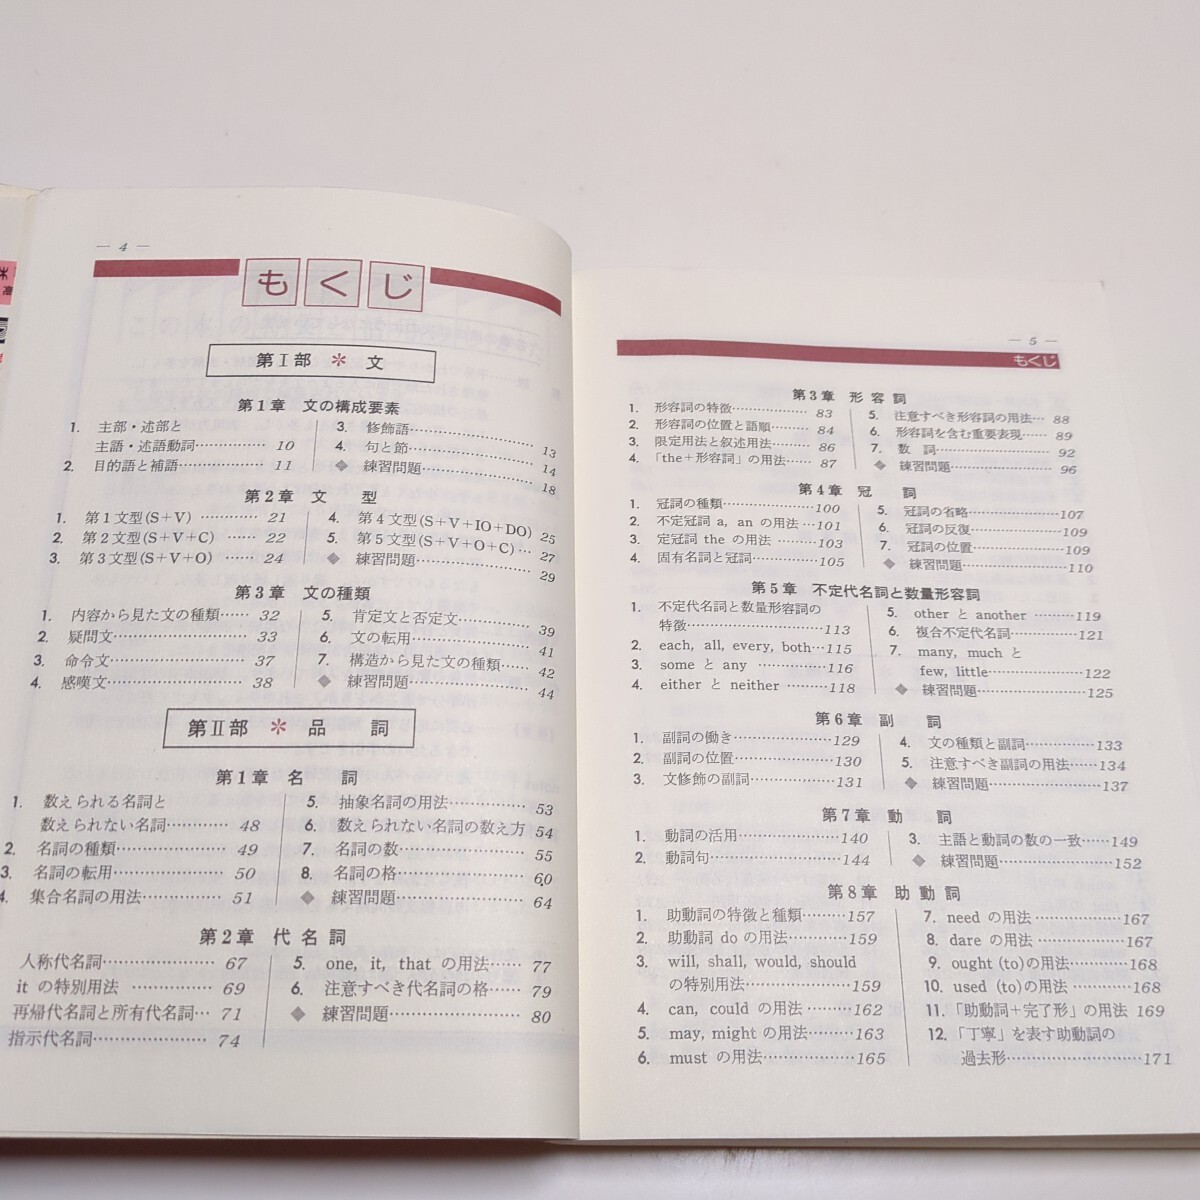 — 4 —
もくじ
第Ⅰ部 ＊ 文
第1章 文の構成要素
1. 主部・述部と
主語・述語動詞………… 10
2. 目的語と補語…………… 11
3. 修飾語…………… 13
4. 句と節…………… 14
◆ 練習問題…………… 18
第2章 文 型
1. 第1文型(S＋V) ………… 21
2. 第2文型(S＋V＋C) …… 22
3. 第3文型(S＋V＋O) …… 24
4. 第4文型(S＋V＋IO＋DO) 25
5. 第5文型(S＋V＋O＋C)… 27
◆ 練習問題…………… 29
第3章 文の種類
1. 内容から見た文の種類…… 32
2. 疑問文…………… 33
3. 命令文…………… 37
4. 感嘆文…………… 38
5. 肯定文と否定文………… 39
6. 文の転用…………… 41
7. 構造から見た文の種類…… 42
◆ 練習問題…………… 44
第Ⅱ部 ＊ 品 詞
第1章 名 詞
1. 数えられる名詞と
数えられない名詞………… 48
2. 名詞の種類…………… 49
3. 名詞の転用…………… 50
4. 集合名詞の用法………… 51
5. 抽象名詞の用法………… 53
6. 数えられない名詞の数え方 54
7. 名詞の数…………… 55
8. 名詞の格…………… 60
◆ 練習問題…………… 64
第2章 代 名 詞
人称代名詞…………… 67
it の特別用法 ………… 69
再帰代名詞と所有代名詞… 71
指示代名詞…………… 74
5. one, it, that の用法…… 77
6. 注意すべき代名詞の格…… 79
◆ 練習問題…………… 80
— 5 —
もくじ
第3章 形 容 詞
1. 形容詞の特徴…………… 83
2. 形容詞の位置と語順……… 84
3. 限定用法と叙述用法……… 86
4. 「the＋形容詞」の用法…… 87
5. 注意すべき形容詞の用法… 88
6. 形容詞を含む重要表現…… 89
7. 数 詞…………… 92
◆ 練習問題…………… 96
第4章 冠 詞
1. 冠詞の種類……………100
2. 不定冠詞 a, an の用法 …101
3. 定冠詞 the の用法 ………103
4. 固有名詞と冠詞…………105
5. 冠詞の省略……………107
6. 冠詞の反復……………109
7. 冠詞の位置……………109
◆ 練習問題……………110
第5章 不定代名詞と数量形容詞
1. 不定代名詞と数量形容詞の
特徴……………113
2. each, all, every, both…115
3. some と any …………116
4. either と neither ………118
5. other と another ………119
6. 複合不定代名詞…………121
7. many, much と
few, little……………122
◆ 練習問題……………125
第6章 副 詞
1. 副詞の働き……………129
2. 副詞の位置……………130
3. 文修飾の副詞……………131
4. 文の種類と副詞…………133
5. 注意すべき副詞の用法……134
◆ 練習問題……………137
第7章 動 詞
1. 動詞の活用……………140
2. 動詞句……………144
3. 主語と動詞の数の一致……149
◆ 練習問題……………152
第8章 助 動 詞
1. 助動詞の特徴と種類………157
2. 助動詞 do の用法…………159
3. will, shall, would, should
の特別用法……………159
4. can, could の用法 ………162
5. may, might の用法………163
6. must の用法……………165
7. need の用法 …………167
8. dare の用法 …………167
9. ought (to)の用法………168
10. used (to)の用法 ………168
11. 「助動詞＋完了形」の用法 169
12. 「丁寧」を表す助動詞の
過去形……………171